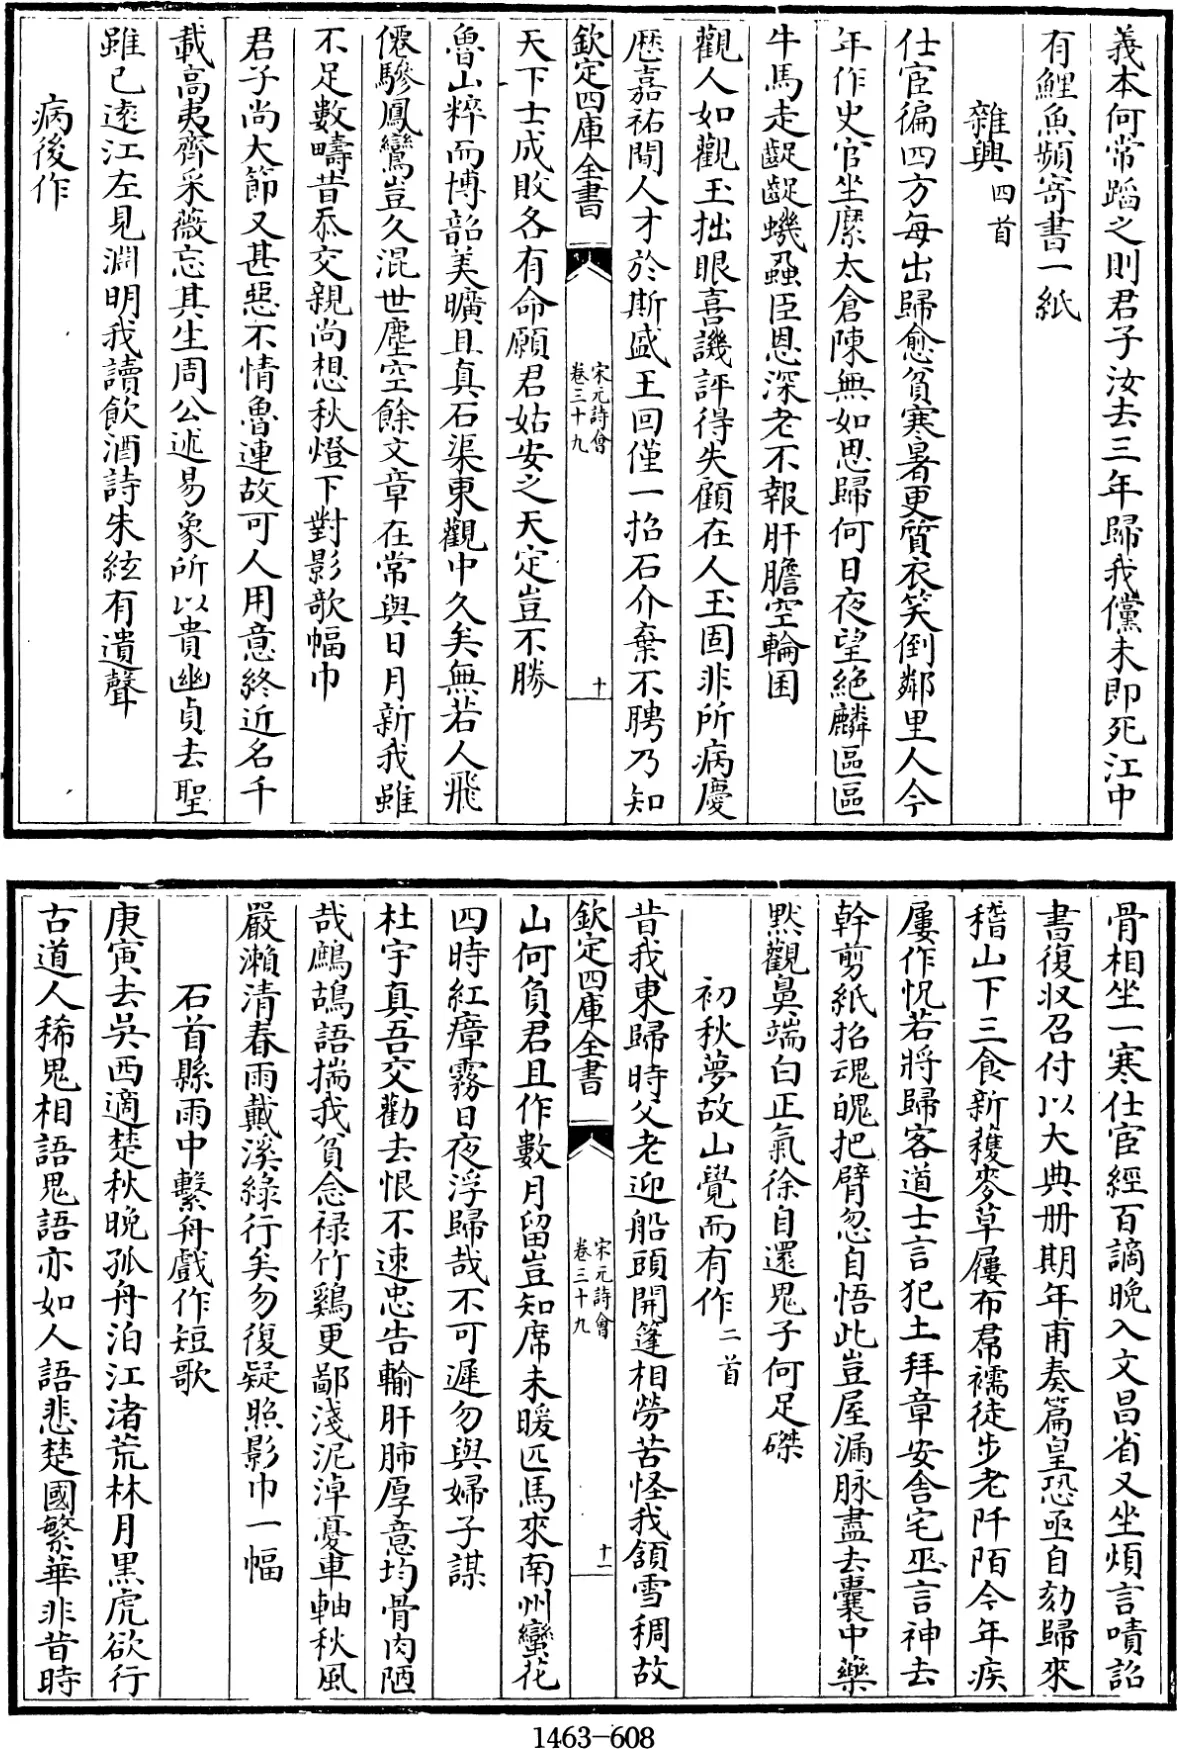 義本何常蹈之則君子汝去三年歸我儻未即死江中
有鯉魚頻寄書一紙
雜興四首
仕宦徧四方每出歸愈貧寒暑更質衣笑倒鄰里人今
年作史官坐縻太倉陳無如思歸何日夜望絶麟區區
牛馬走齪齪蟣蝨臣恩深老不報肝膽空輪囷
觀人如觀玉拙眼喜譏評得失顧在人玉固非所病慶
厯嘉祐間人才於斯盛王回僅一招石介棄不聘乃知
欽定四庫全書
宋元詩會
卷三十九
十
天下士成敗各有命願君姑安之天定豈不勝
魯山粹而博韶美曠且真石渠東觀中久矣無若人飛
僊驂鳳鸞豈久混世塵空餘文章在常與日月新我雖
不足數疇昔忝交親尚想秋燈下對影歌幅巾
君子尚大節又甚惡不情魯連故可人用意終近名千
載高夷齊采薇忘其生周公述易象所以貴幽貞去聖
雖已逺江左見淵明我讀飲酒詩朱絃有遺聲
病後作
骨相坐一寒仕宦經百謫晩入文昌省又坐煩言嘖詔
書復收召付以大典册期年甫奏篇皇恐亟自劾歸來
稽山下三食新穫麥草屨布帬襦徒步老阡陌今年疾
屢作怳若將歸客道士言犯土拜章安舎宅巫言神去
幹剪紙招魂魄把臂忽自悟此豈屋漏脉盡去囊中藥
黙觀鼻端白正氣徐自還鬼子何足磔
初秋夢故山覺而有作二首
昔我東歸時父老迎船頭開篷相勞苦怪我頷雪稠故
欽定四庫全書
宋元詩會
卷三十九
十一
山何負君且作數月留豈知席未暖匹馬來南州蠻花
四時紅瘴霧日夜浮歸哉不可遲勿與婦子謀
杜宇真吾交勸去恨不速忠告輸肝肺厚意均骨肉陋
哉鷓鴣語揣我貧念禄竹鷄更鄙淺泥淖憂車軸秋風
嚴瀨清春雨戴溪緑行矣勿復疑照影巾一幅
石首縣雨中繫舟戲作短歌
庚寅去吳西適楚秋晩孤舟泊江渚荒林月黒虎欲行
古道人稀鬼相語鬼語亦如人語悲楚國繁華非昔時
1463-608